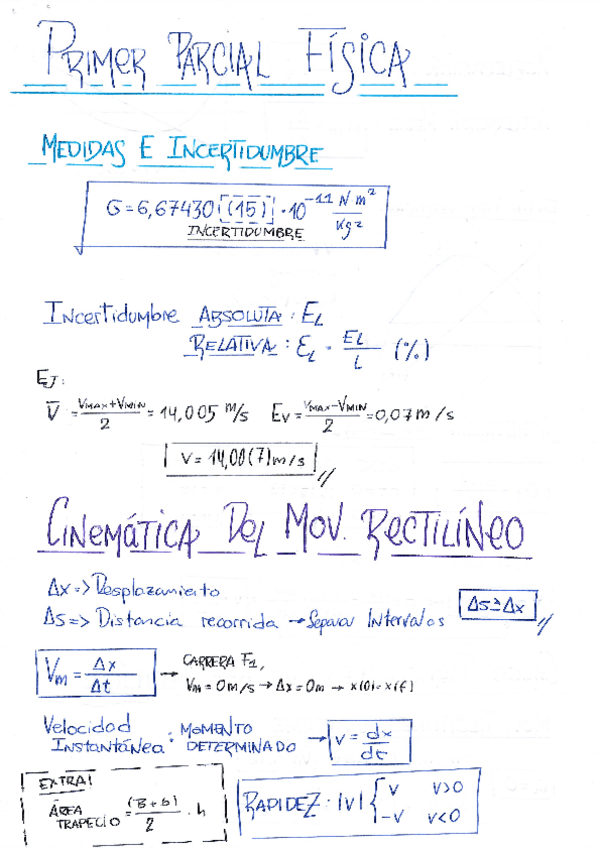 PRIMER PARCIAL FÍSICA
MEDIDAS E INCERTIDUMBRE
G = 6,67430 (15) · 10^-11 N m^2 / Kg^2
INCERTIDUMBRE
Incertidumbre ABSOLUTA : EL
RELATIVA : εL = EL / L (%)
EJ:
V̅ = VMAX+VMIN / 2 = 14,005 m/s EV = VMAX-VMIN / 2 = 0,07 m/s
V = 14,00(7) m/s
CINEMÁTICA DEL MOV. RECTILÍNEO
Δx => Desplazamiento
Δs => Distancia recorrida → Separar Intervalos Δs ≥ Δx
Vm = Δx / Δt → CARRERA F1,
Vm = 0 m/s → Δx = 0m → x(0) = x(f)
Velocidad Instantánea : MOMENTO DETERMINADO → v = dx / dt
EXTRA!
ÁREA TRAPECIO = (B+b) / 2 · h
RAPIDEZ : |v| { v v>0
-v v<0